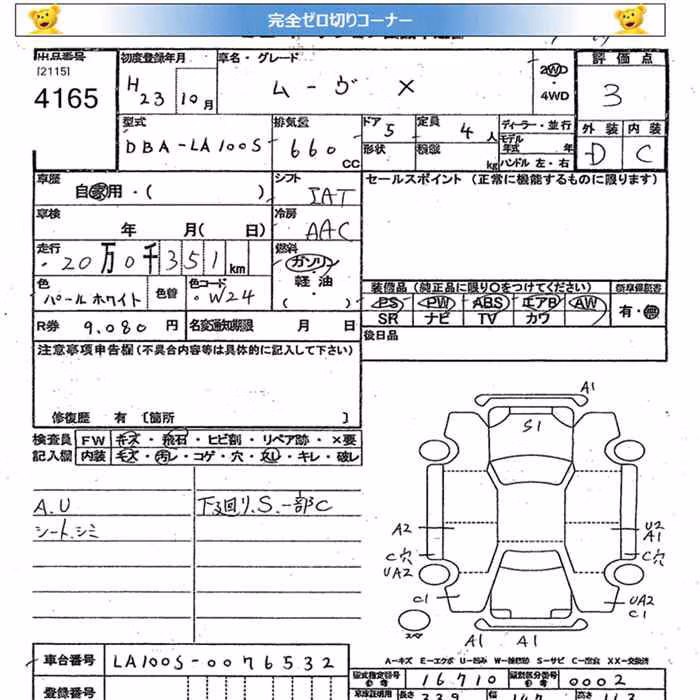 完全ゼロ切りコーナー
出品番号
[2115]
4165
初度登録年月
H 23 10月
車名・グレード
ムーヴ X
2WD
・
4WD
評価点
3
外装 内装
D C
型式
DBA-LA100S
排気量
660 CC
ドア 5
形状
定員 4人
積載 kg
ディーラー・並行
モデル
年式 年
ハンドル 左・右
車歴
自家用・( )
シフト
IAT
セールスポイント (正常に機能するものに限ります)
車検
年 月( 日)
冷房
AAC
走行
20万0千351km
燃料
ガソリン
・
軽油
・
( )
色
パールホワイト
色替
色コード
W24
装備品 (純正品に限り〇をつけてください)
PS PW ABS エアB AW
SR ナビ TV カワ
有・無
R券 9,080 円
名変通知期限 月 日
後日品
注意事項申告欄 (不具合内容等は具体的に記入して下さい)
修復歴 有 〔箇所 〕
検査員 FW キズ・飛石・ヒビ割・リペア跡・×要
記入欄 内装 キズ・汚レ・コゲ・穴・ ・キレ・破レ
A.U
シート.シミ
下回り.S.一部C
A1
S1
A2
C穴
UA2
C1
U2
A1
C穴
UA2
C1
スペア
A1 A1
A-キズ E-エクボ U-凹み W-補修跡 S-サビ C-腐食 XX-交換済
車台番号 LA100S-0076532
型式指定番号 16710
類別区分番号 0002
登録番号
長さ 339 幅 147 高さ